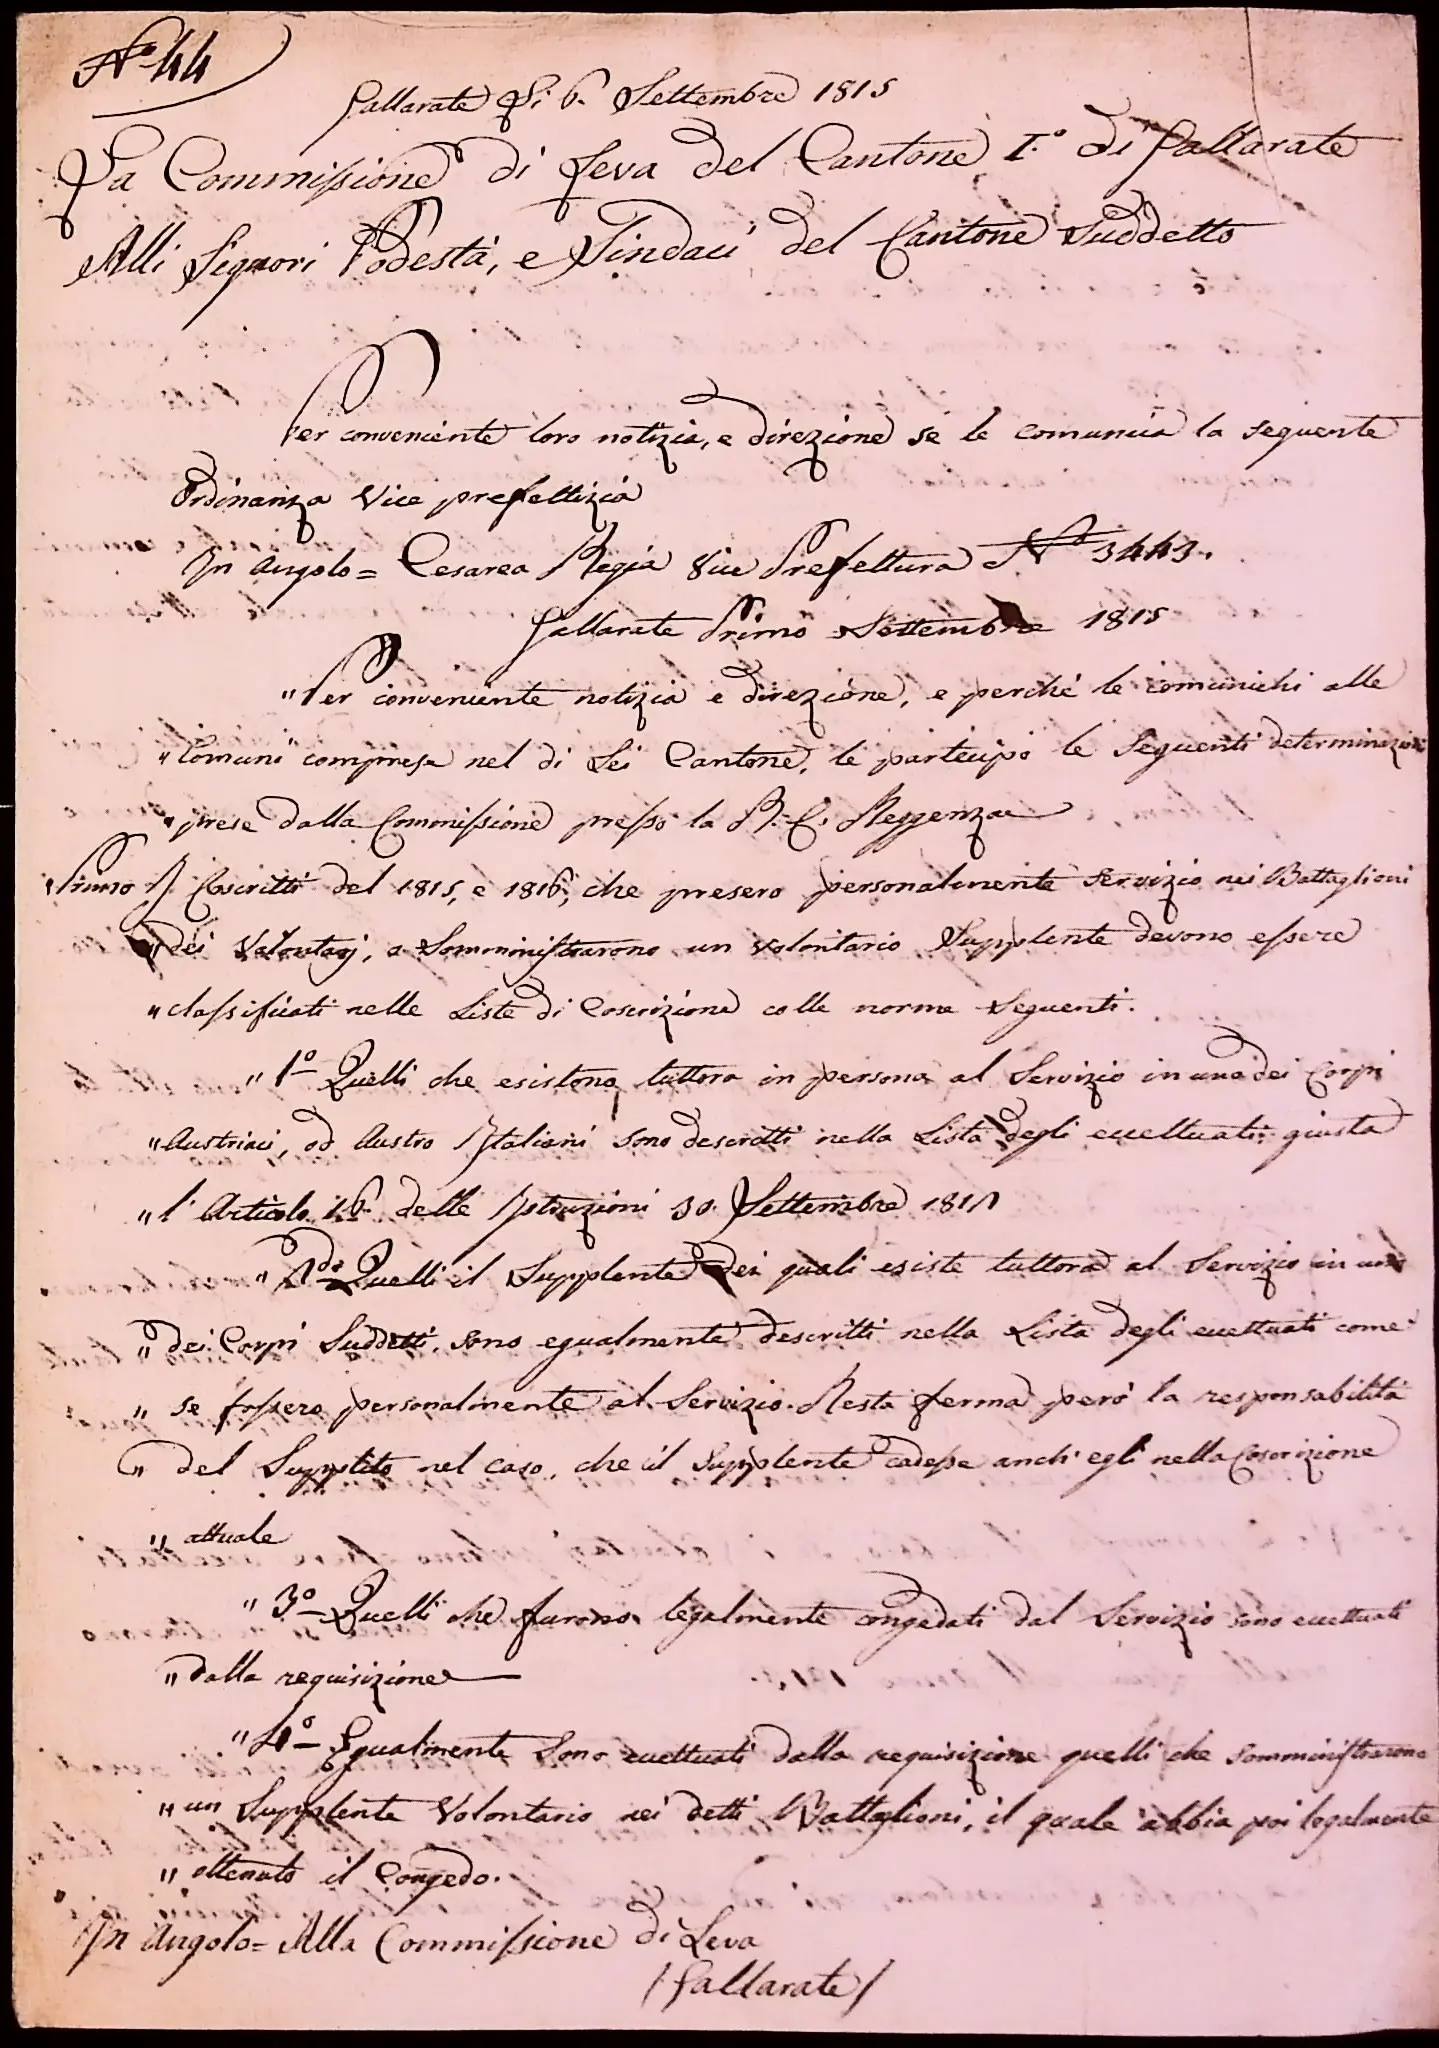 N.º 44
Gallarate Di 6. Settembre 1815
La Commissione di Leva del Cantone I.º di Gallarate
Alli Signori Podestà, e Sindaci del Cantone Suddetto
Per conveniente loro notizia, e direzione se le comunica la seguente
Ordinanza Vice prefettizia
In Angolo = Cesarea Regia Vice Prefettura N.º 3443.
Gallarate Primo Settembre 1815
" Per conveniente notizia e direzione, e perché le comunichi alle
" Comuni comprese nel di Lei Cantone, le partecipo le seguenti determinazioni
" prese dalla Commissione presso la R. C. Reggenza
" Primo I. Coscritti del 1815, e 1816, che presero personalmente servizio nei Battaglioni
" dei Volontarj, o Somministrarono un volontario Supplente devono essere
" classificati nelle Liste di Coscrizione colle norme Seguenti.
" 1º Quelli che esistono tuttora in persona al Servizio in uno dei Corpi
" Austriaci, od Austro Italiani sono descritti nella Lista degli eccettuati giusta
" l'Articolo 16. delle Istruzioni 30. Settembre 1811
" 2.do Quelli il Supplente dei quali esiste tuttora al Servizio in uno
" dei Corpi Suddetti, sono egualmente descritti nella Lista degli eccettuati come
" se fossero personalmente al Servizio. Resta ferma però la responsabilità
" del Supplito nel caso, che il Supplente cadesse anch'egli nella Coscrizione
" attuale
" 3º Quelli che furono legalmente congedati dal Servizio sono eccettuati
" dalla requisizione
" 4º Egualmente sono eccettuati dalla requisizione quelli che somministrarono
" un Supplente Volontario nei detti Battaglioni, il quale abbia poi legalmente
" ottenuto il Congedo.
In Angolo = Alla Commissione di Leva
/ Gallarate /